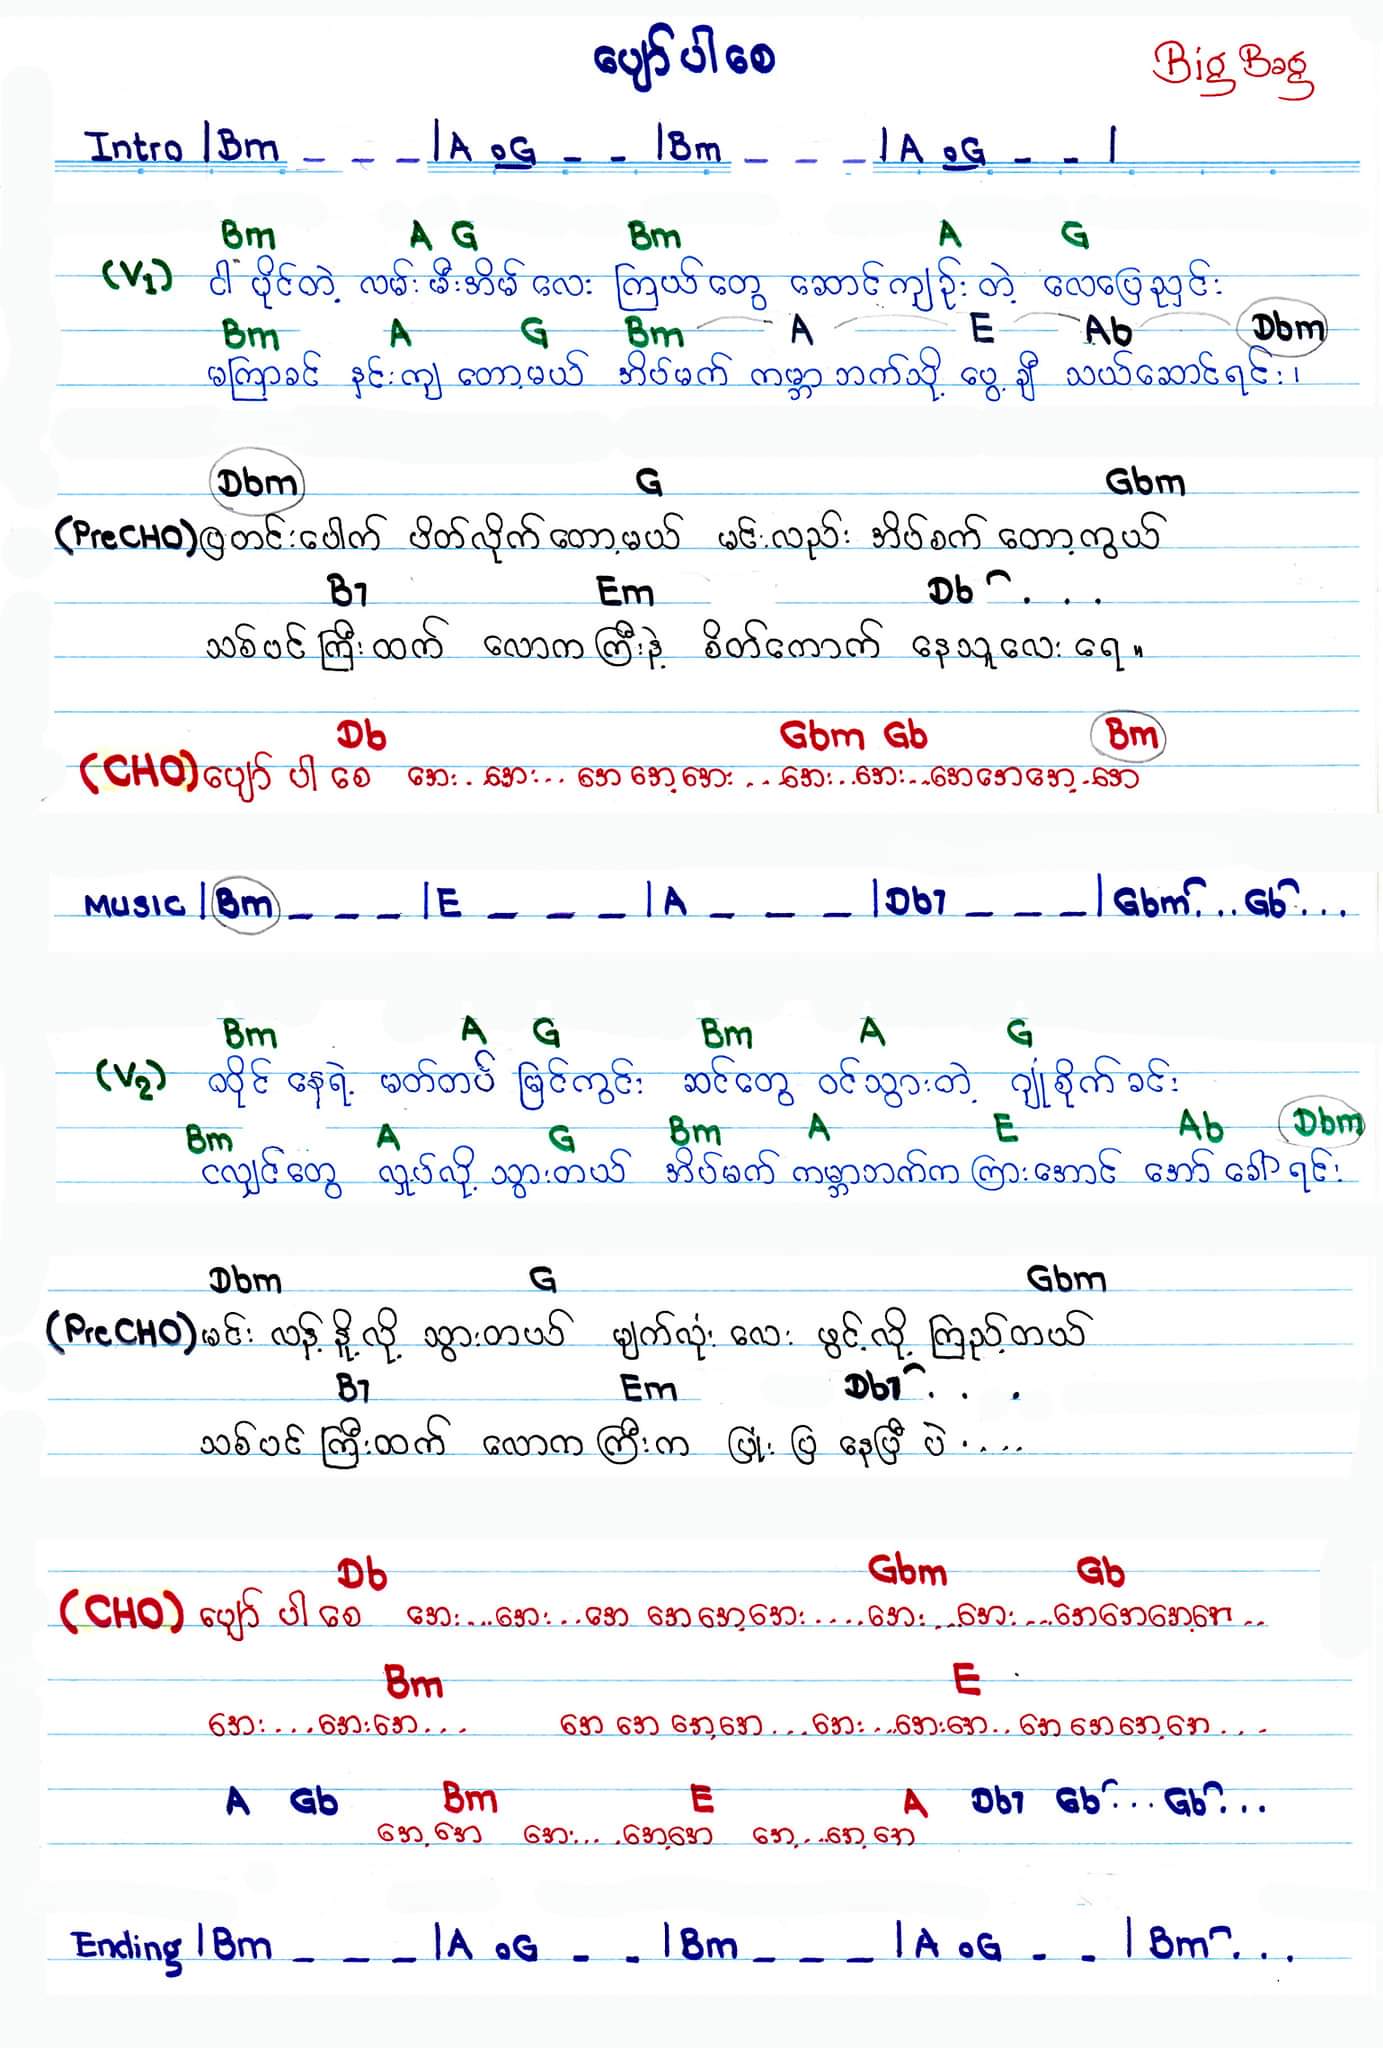 ပျော်ပါစေ
Big Bag
Intro |Bm _ _ _ |A oG _ _ |Bm _ _ _ |A oG _ _ |
Bm A G Bm A G
(V1) ငါ ပိုင်တဲ့ လမ်းမီးအိမ်လေး ကြယ်တွေ ဆောင်ကျဉ်းတဲ့ လေပြေညှင်း
Bm A G Bm A E Ab Dbm
မကြာခင် နှင်းကျ တော့မယ် အိပ်မက် ကမ္ဘာဘက်သို့ ပွေ့ချီ သယ်ဆောင်ရင်း၊
Dbm G Gbm
(PreCHO) ပြတင်းပေါက် ပိတ်လိုက်တော့မယ် မင်းလည်း အိပ်စက်တော့ကွယ်
B7 Em Db . . .
သစ်ပင်ကြီးထက် လောကကြီးနဲ့ စိတ်ကောက် နေသူလေး ရေ။
Db Gbm Gb Bm
(CHO) ပျော် ပါ စေ အေး.. အေး... အေ အေ့အေး ... အေး...အေး...အေအေအေ့.အေ
MUSIC |Bm _ _ _ |E _ _ _ |A _ _ _ |Db7 _ _ _ |Gbm... Gb...
Bm A G Bm A G
(V2) ခုံစိုင်း နေရဲ့ မတ်တပ် မြင်ကွင်း ဆင်တွေ ဝင်သွားတဲ့ ဂျုံစိုက်ခင်း
Bm A G Bm A E Ab Dbm
ငလျှင်တွေ လှုပ်လို့ သွားတယ် အိပ်မက် ကမ္ဘာဘက်က ကြားအောင် အော်ခေါ်ရင်း
Dbm G Gbm
(PreCHO) မင်း လန့်နိုးလို့ သွားတယ် မျက်လုံး လေး ဖွင့်လို့ ကြည့်တယ်
B7 Em Db7 . . .
သစ်ပင်ကြီးထက် လောကကြီးက ပြုံး ပြ နေပြီ ပဲ ....
Db Gbm Gb
(CHO) ပျော် ပါ စေ အေး...အေး...အေ အေအေ့အေး.....အေး...အေး...အေအေအေ့အေ..
Bm E
အေး...အေးအေ... အေ အေ အေ့အေ...အေး...အေးအေ..အေ အေအေ့အေ...
A Gb Bm E A Db7 Gb... Gb...
အေ့အေ အေး....အေ့အေ အေ့...အေ့အေ
Ending |Bm _ _ _ |A oG _ _ |Bm _ _ _ |A oG _ _ |Bm...